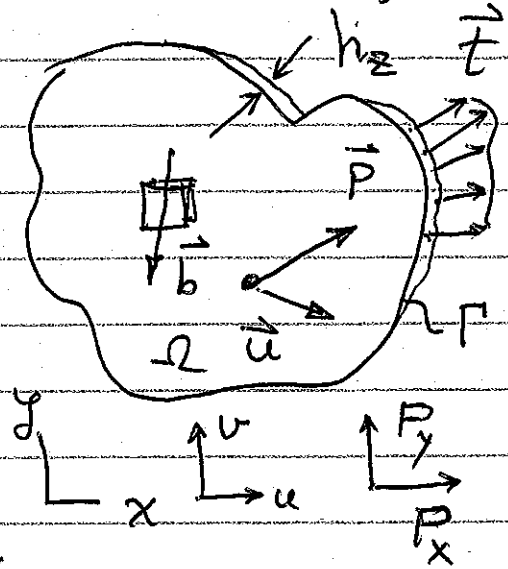 h_z
t⃗
P⃗
b⃗
Ω
u⃗
Γ
y
x
v
u
P_y
P_x